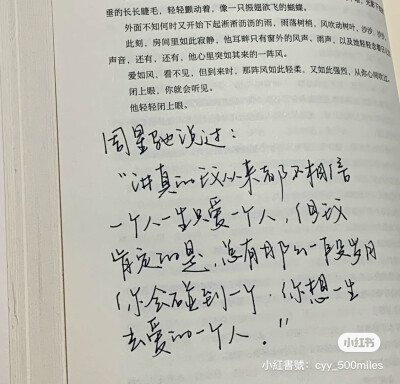 垂的长长睫毛，轻轻颤动着，像一只振翅欲飞的蝴蝶。
外面不知何时又开始下起淅淅沥沥的雨，雨落树梢，风吹动树叶，沙沙，沙沙
此刻，房间里如此寂静，他耳畔只有窗外的风声，雨声，以及她轻轻念着
声音，还有，还有，他心里突如其来的一阵风。
爱如风，看不见，但到来时，那阵风如此轻柔，又如此强烈，从你心间吹过
闭上眼，你就会听见。
他轻轻闭上眼。
周星驰说过：
“讲真的我从来都不相信
一个人一生只爱一个人，但我
肯定的是，总有那么一段岁月
你会碰到一个，你想一生
去爱的一个人。”
小红书
小紅書號：cyy_500miles